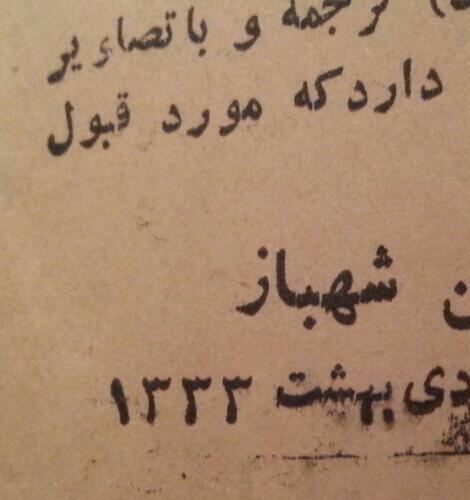 ترجمه و با تصاویر
دارد که مورد قبول
ن شهباز
دی بهشت ۱۳۳۳